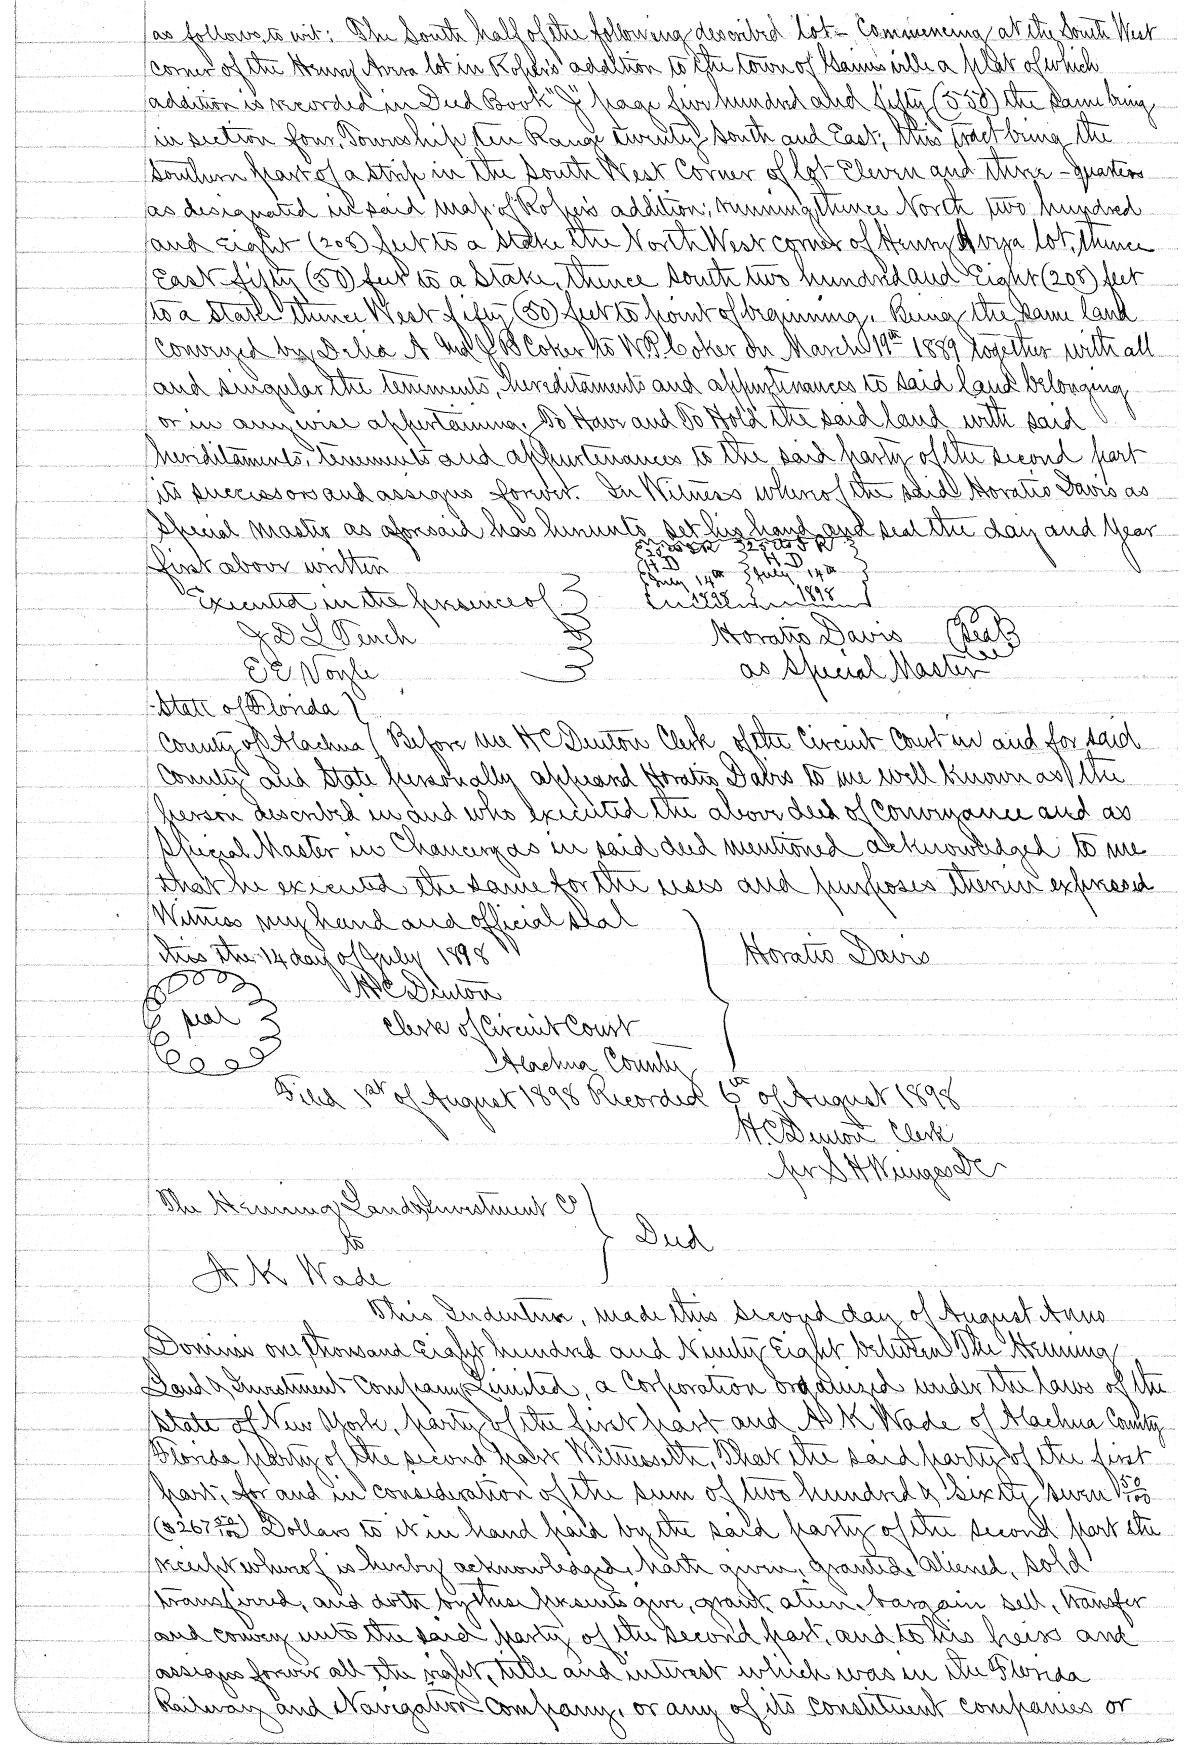 as follows, to wit: The South half of the following described lot - Commencing at the South West
corner of the Henry Avera lot in Roper's addition to the town of Gainsville a plat of which
addition is recorded in Deed Book "J" page five hundred and fifty (550) the same being
in section four, Township ten Range twenty South and East; this tract being the
Southern part of a strip in the South West Corner of lot Eleven and three-quarters
as designated in said map of Roper's addition; running thence North two hundred
and eight (208) feet to a stake the North West corner of Henry Avera lot, thence
East fifty (50) feet to a stake, thence South two hundred and Eight (208) feet
to a stake thence West fifty (50) feet to point of beginning. Being the same land
conveyed by Delia A and J B Coker to W.P. Coker on March 19th 1889 together with all
and singular the tenements, hereditaments and appurtenances to said land belonging
or in anywise appertaining. To Have and To Hold the said land with said
hereditaments, tenements and appurtenances to the said party of the second part
its successors and assigns forever. In Witness whereof the said Horatio Davis as
Special Master as aforesaid has hereunto set his hand and seal the day and year
first above written
25 cts I R 25 cts I R
H D H D
July 14th July 14th
1898 1898
Executed in the presence of
J D L Tench Horatio Davis (Seal)
E E Voyle as Special Master
State of Florida
County of Alachua Before me H C Denton Clerk of the Circuit Court in and for said
County and State personally appeard Horatio Davis to me well known as the
person described in and who executed the above deed of conveyance and as
Special Master in Chancery as in said deed mentioned acknowledged to me
that he executed the same for the uses and purposes therein expressed
Witness my hand and official seal
this the 14 day of July 1898 Horatio Davis
H C Denton
seal Clerk of Circuit Court
Alachua County
Filed 1st of August 1898 Recorded 6th of August 1898
H.C. Denton Clerk
pr S H Wienges DC
The Henning Land & Investment Co
to Deed
A K Wade
This Indenture, made this second day of August Anno
Domini one thousand Eight hundred and Ninety Eight between The Henning
Land & Investment Company Limited, a Corporation organized under the laws of the
State of New York, party of the first part and A K Wade of Alachua County
Florida party of the second part Witnesseth, That the said party of the first
part, for and in consideration of the sum of two hundred & Sixty seven 50/100
($267 50/100) Dollars to it in hand paid by the said party of the second part the
receipt whereof is hereby acknowledged, hath given, granted, aliened, sold
transferred, and doth by these presents give, grant, alien, bargain sell, transfer
and convey unto the said party of the second part, and to his heirs and
assigns forever all the right, title and interest which was in the Florida
Railway and Navigation Company, or any of its constituent companies or